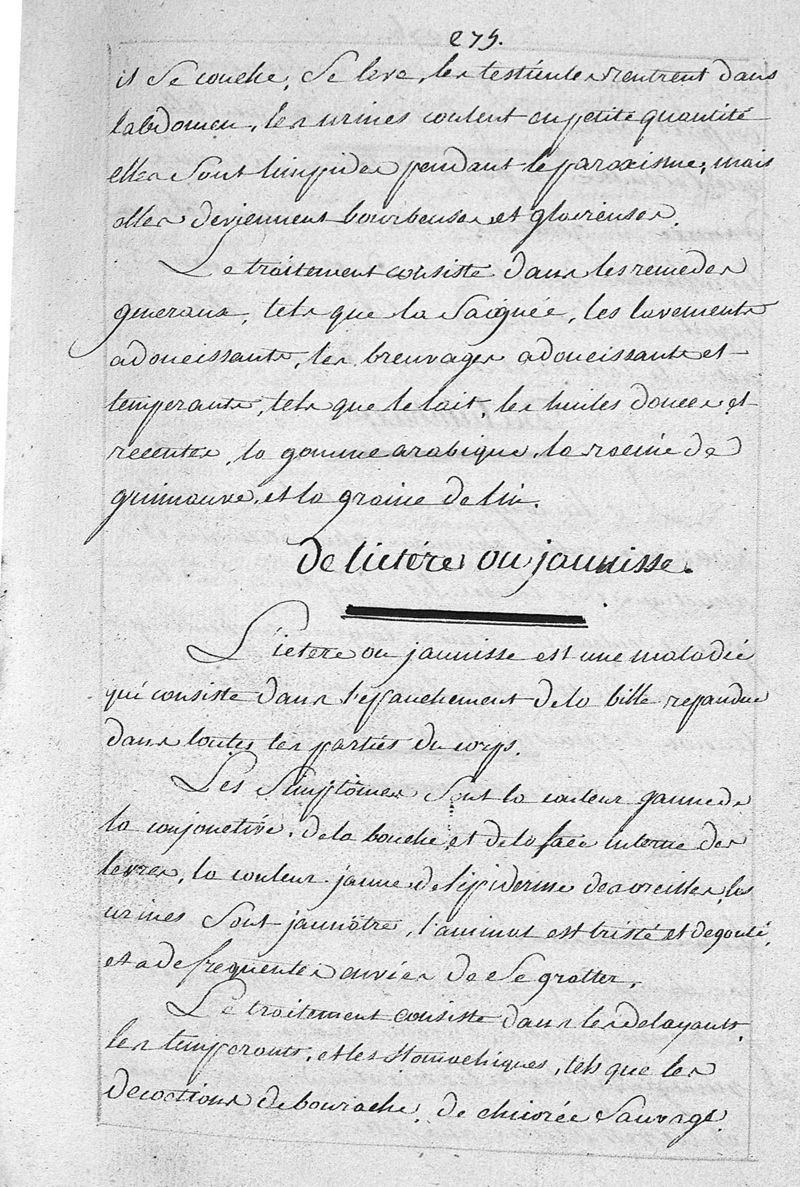 275.
il se couche, se leve, les testicules rentrent dans
labdomen, les urines coulent en petite quantité
elles sont limpides pendant le paroxisme, mais
elles deviennent bourbeuses et glaireuses.
Le traitement consiste dans les remedes
generaux, tels que la Saignée, les lavements
adoucissants, les breuvages adoucissants et
temperants, tels que le lait, les huiles douces et
recentes, la gomme arabique, la racine de
guimauve, et la graine de lin.
De lictère ou jaunisse.
L'ictere ou jaunisse est une maladie
qui consiste dans l'epanchement de la bille repandue
dans toutes les parties du corps.
Les Simptômes sont la couleur gaune de
la conjonctive, de la bouche, et de la face interne des
levres, la couleur jaune de l'epiderme des oreilles, les
urines sont jaunâtre, l'animal est triste et degouté,
et a de frequentes envies de se gratter.
Le traitement consiste dans les delayants,
les temperants, et les stomachiques, tels que les
decoctions de bourache, de chicorée Sauvage.